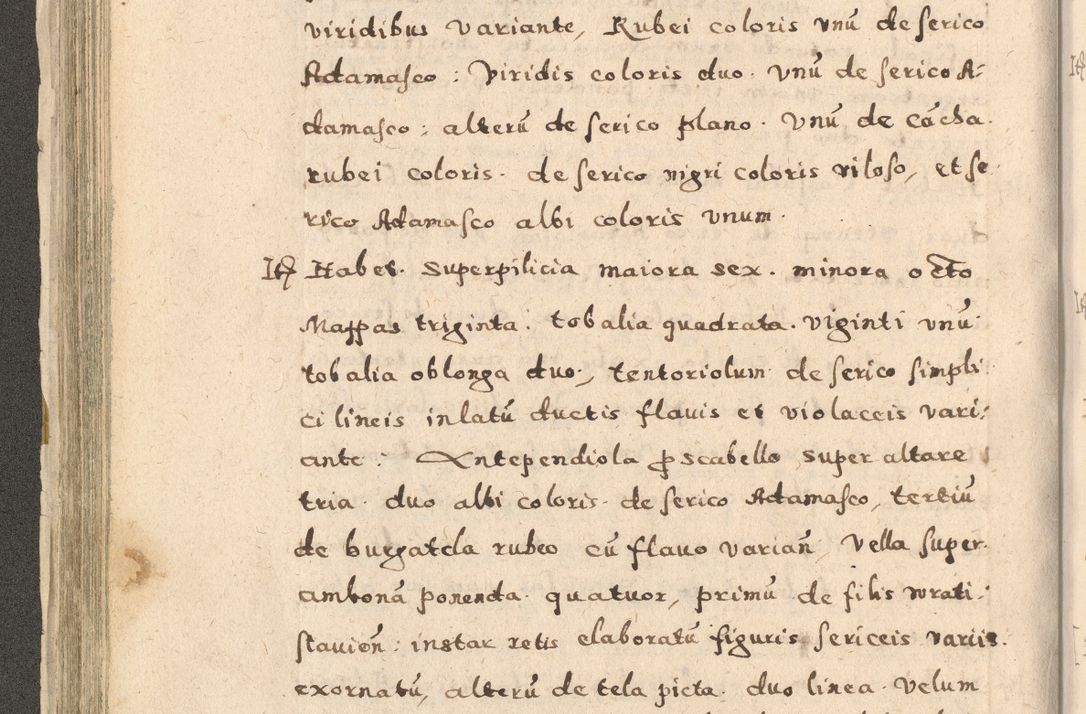 viridibus variante, Rubei coloris vnū de serico
Adamasco : Viridis coloris duo. Vnū de serico A-
damasco ; alterū de serico plano. Vnū de cácha.
rubei coloris. de serico nigri coloris viloso, et se-
rico Adamasco albi coloris vnum.
Itē Habet. Superpilicia maiora sex. minora octo
Mappas triginta. tobalia quadrata. viginti vnū.
tobalia oblonga duo, tentoriolum de serico simpli
ci lineis in latū ductis flauis et violaceis vari-
ante. Antependiola p scabello super altare
tria. duo albi coloris. de serico Adamasco, tertiū
de burgatela rubeo cū flauo variañ, Vella super.
ambonā ponenda. quatuor, primū de filis wrati-
slauień: instar retis elaboratū figuris sericeis variis.
exornatū, alterū de tela picta. duo linea. Velum